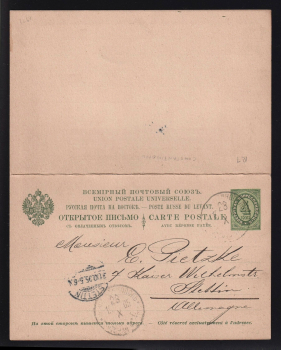 ВСЕМІРНЫЙ ПОЧТОВЫЙ СОЮЗЪ.
UNION POSTALE UNIVERSELLE.
РУССКАЯ ПОЧТА НА ВОСТОКѢ. — POSTE RUSSE DU LEVANT.
ОТКРЫТОЕ ПИСЬМО CARTE POSTALE
СЪ ОПЛАЧЕННЫМЪ ОТВѢТОМЪ. AVEC RÉPONSE PAYÉE.
Monsieur
E. Pietzke
4 Kaiser Wilhelmstr
Stettin
Allemagne
STETTIN
На этой сторонѣ пишется только адресъ. — Côté réservé exclusivement à l'adresse.